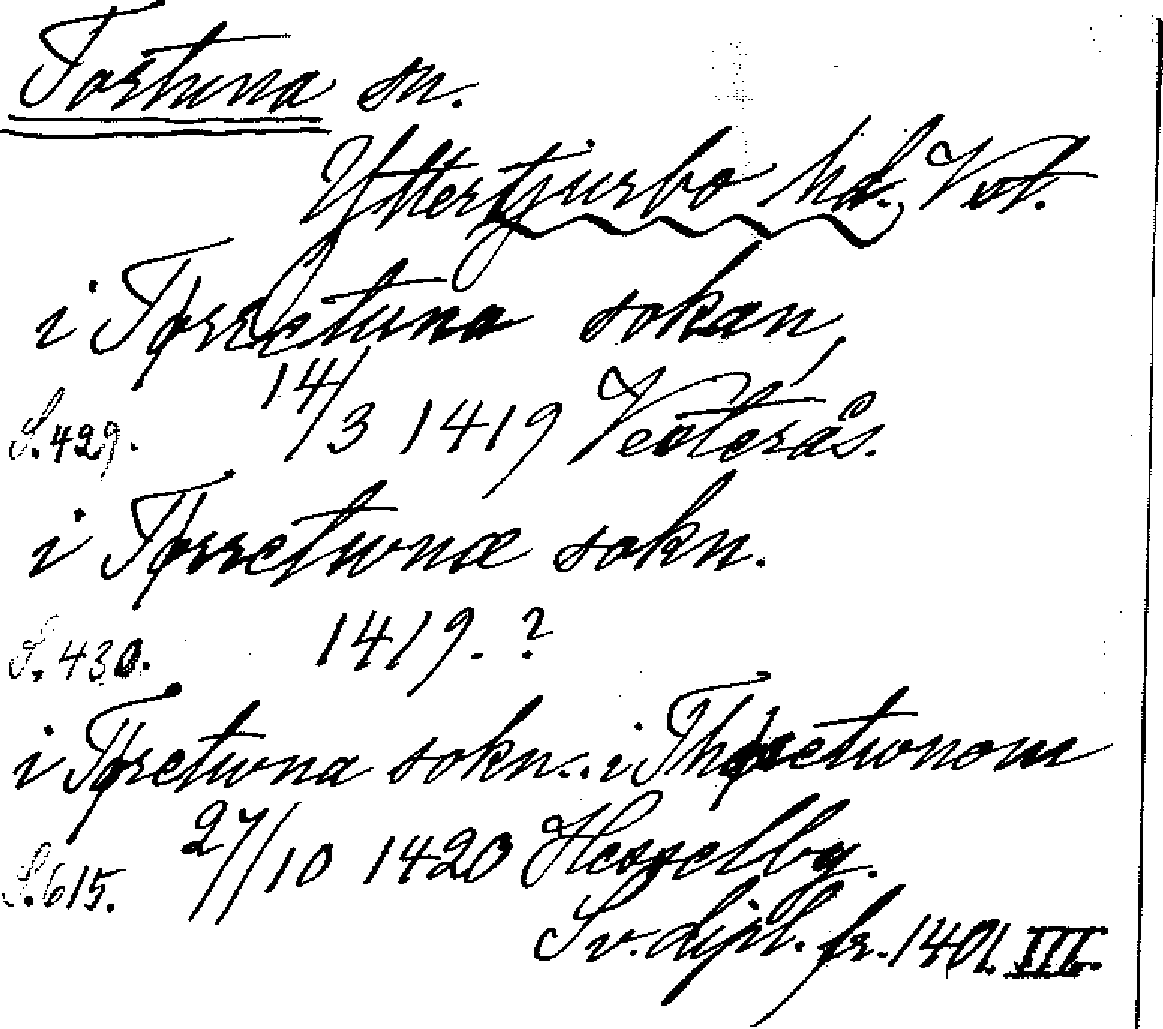 Torstuna sn.
Yttertjurbo hd. Vstm.
i Tørrctuna sokæn,
S. 429. 14/3 1419 Vesterås.
i Tørrctwnæ sokn.
S. 430. 1419. ?
i Tørctwna sokn... i Thørctwnom
S. 615. 27/10 1420 Hesselby.
Sv. dipl. fr. 1401. III.